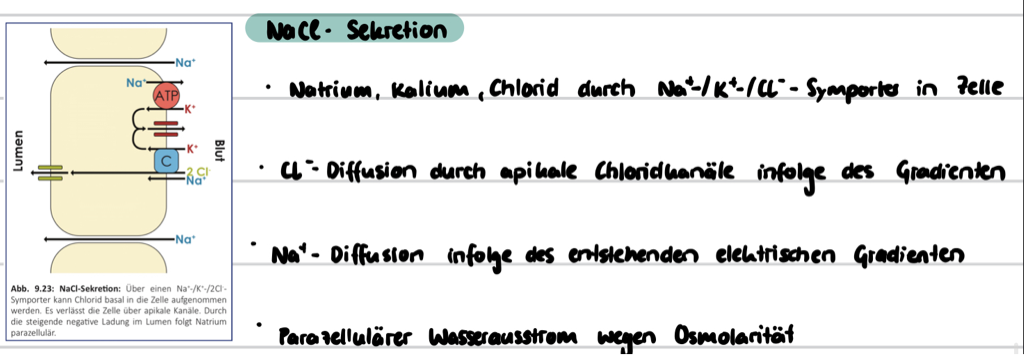 NaCl- Sekretion
Na⁺
Na⁺
ATP
K⁺
K⁺
C
2 Cl⁻
Na⁺
Na⁺
Lumen
Blut
Abb. 9.23: NaCl-Sekretion: Über einen Na⁺-/K⁺-/2Cl⁻-
Symporter kann Chlorid basal in die Zelle aufgenommen
werden. Es verlässt die Zelle über apikale Kanäle. Durch
die steigende negative Ladung im Lumen folgt Natrium
parazellulär.
· Natrium, Kalium, Chlorid durch Na⁺-/K⁺-/Cl⁻- Symporter in Zelle
· Cl⁻- Diffusion durch apikale Chloridkanäle infolge des Gradienten
· Na⁺- Diffusion infolge des entstehenden elektrischen Gradienten
· Parazellulärer Wasserausstrom wegen Osmolarität